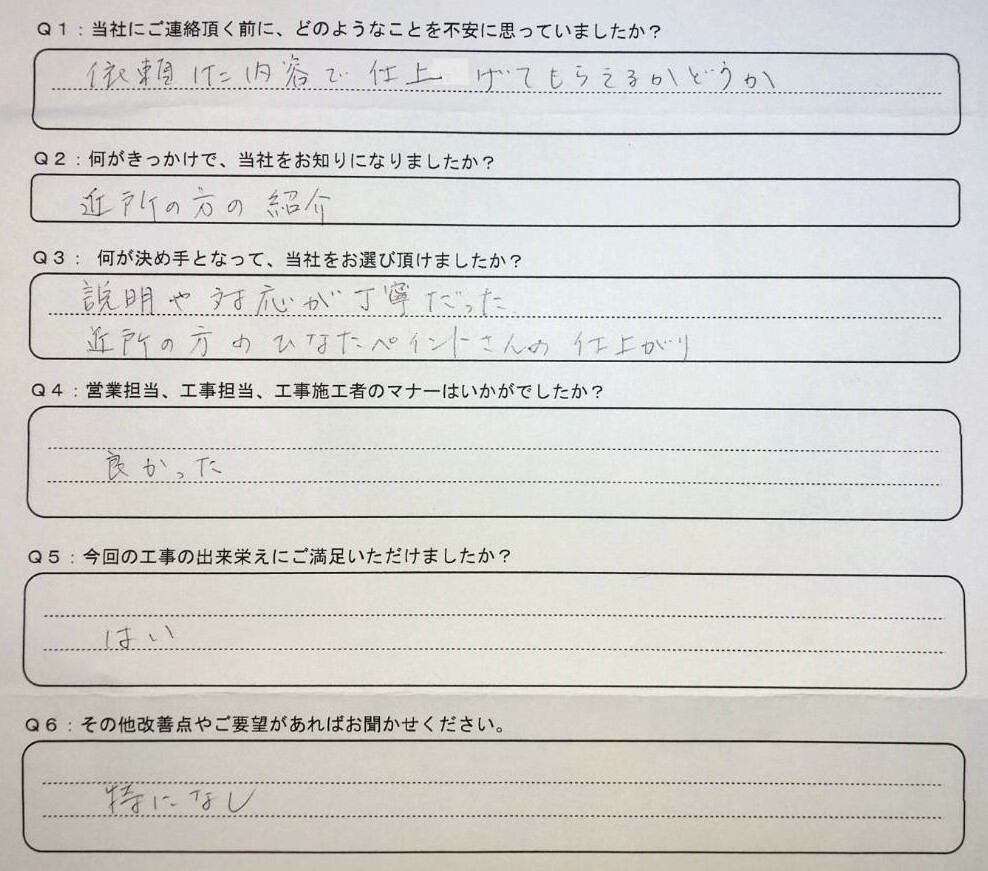 Q1：当社にご連絡頂く前に、どのようなことを不安に思っていましたか？
依頼した内容で仕上げてもらえるかどうか
Q2：何がきっかけで、当社をお知りになりましたか？
近所の方の紹介
Q3： 何が決め手となって、当社をお選び頂けましたか？
説明や対応が丁寧だった
近所の方のひなたペイントさんの仕上がり
Q4：営業担当、工事担当、工事施工者のマナーはいかがでしたか？
良かった
Q5：今回の工事の出来栄えにご満足いただけましたか？
はい
Q6：その他改善点やご要望があればお聞かせください。
特になし